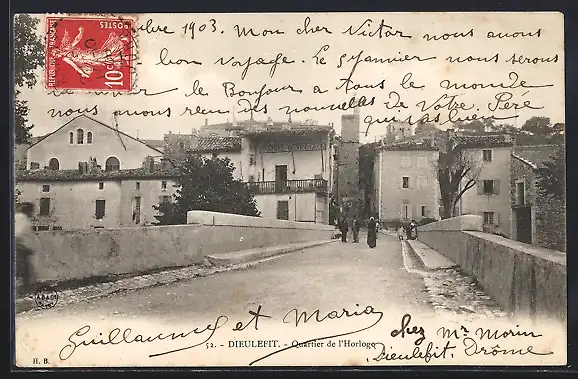 POSTES
REPUBLIQUE FRANÇAISE
10
bre 1903. Mon cher Victor nous avons
bon voyage. Le 9 Janvier nous serons
le Bonjour a tout le monde
nous avons reçu des nouvelles de Votre Père
qui va bien
52. - DIEULEFIT. - Quartier de l'Horloge
Guillaume et Maria
chez Mr Morin
Dieulefit, Drôme
H. B.